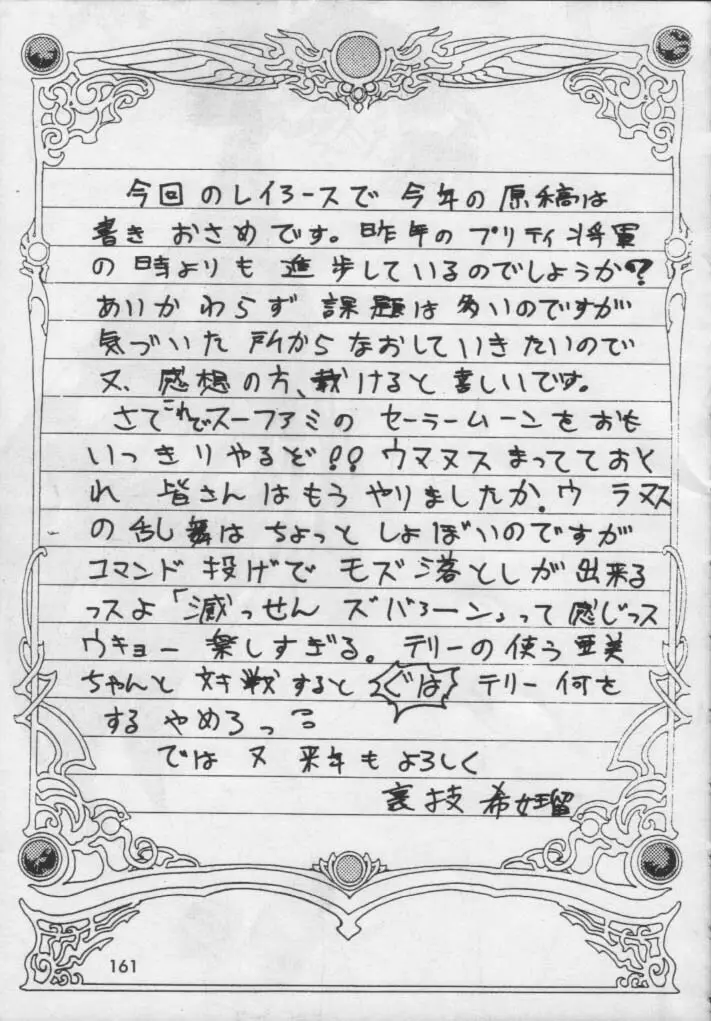 今回のレイろースで今年の原稿は
書きおさめです。昨年のプリティ斗将軍
の時よりも進歩しているのでしょうか?
あいかわらず課題は多いのですが
気づいた所からなおしていきたいので
又、感想の方、戴けると喜しいです。
さてこれでスーファミのセーラームーンをおも
いっきりやるぞ!!ウマヌスまっててておく
れ 皆さんはもうやりましたか。ウラヌス
の乱舞はちょっとしょぼいのですが
コマンド投げでモズ落としが出来る
っスよ「滅っせんズバろーン」って感じっス
ウキョー楽しすぎる。テリーの使う亜美
ちゃんと対戦すると ぐは テリー何を
するやめろっ
では又来年もよろしく
裏技 希
161